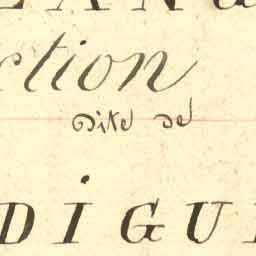 ction
dite de
DIGU